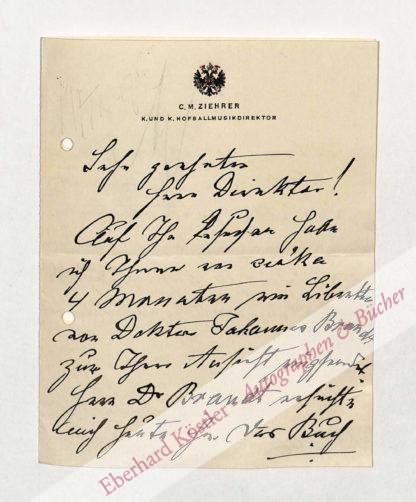 C. M. ZIEHRER
K. UND K. HOFBALLMUSIKDIREKTOR
Sehr geehrter
Herr Direktor!
Auf Ihr Ersuchen habe
ich Ihnen vor cirka
4 Monaten ein Libretto
von Doktor Johannes Brandt
zur Ihrer Ansicht
Herr Dr Brandt ersuchte
mich heute das Buch
Eberhard Köstler Autographen & Bücher